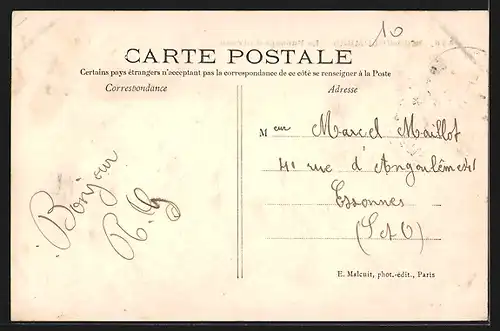 10
CARTE POSTALE
Certains pays étrangers n'acceptant pas la correspondance de ce côté se renseigner à la Poste
Correspondance
Adresse
Bonjour
Meur Marcel Maillot
rue d'Angoulême
Essonnes
(S et O)
E. Malcuit, phot.-édit., Paris